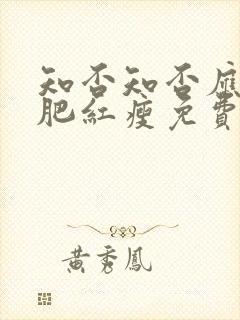 知否知否應
肥紅瘦免費
黃秀鳳